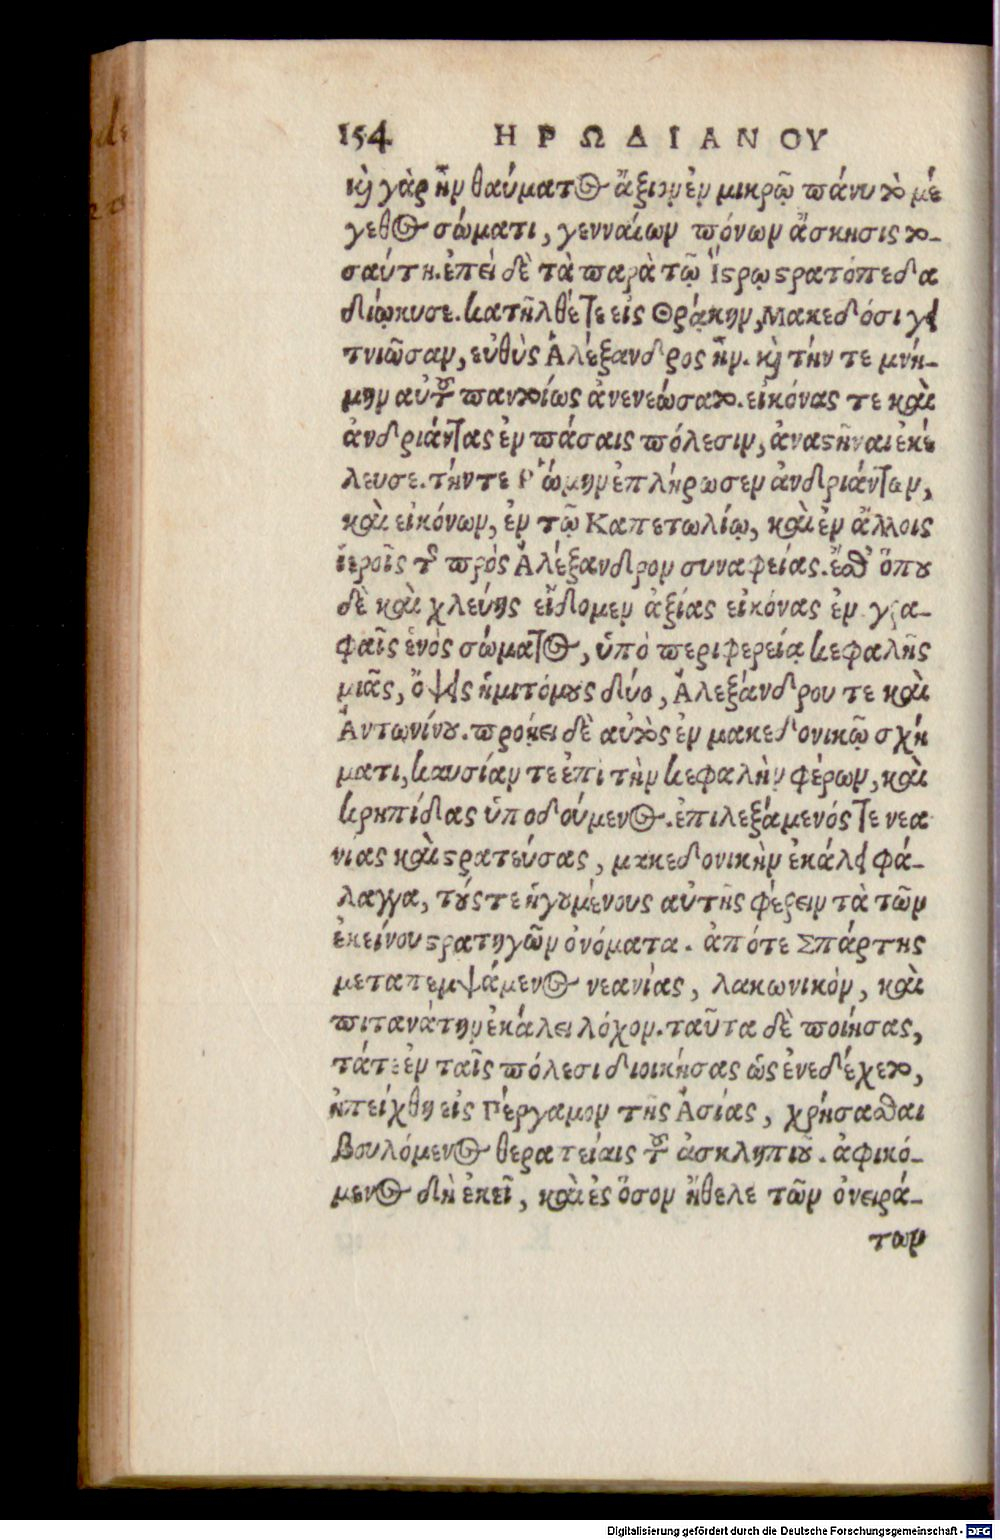 154 ΗΡΩΔΙΑΝΟΥ
καὶ γὰρ ἦν θαύματος ἄξιον ἐν μικρῷ πάνυ τὸ μέ
γεθος σώματι, γενναίων πόνων ἄσκησις το-
σαύτη. ἐπεὶ δὲ τὰ παρὰ τῷ Ἴστρῳ στρατόπεδα
διῴκησε. κατῆλθέ τε εἰς Θρᾴκην, Μακεδόσι γει
τνιῶσαν, εὐθὺς Ἀλέξανδρος ἦν. καὶ τήν τε μνή-
μην αὐτοῦ παντοίως ἀνενεώσατο. εἰκόνας τε καὶ
ἀνδριάντας ἐν πάσαις πόλεσιν, ἀναστῆναι ἐκέ
λευσε. τήν τε Ῥώμην ἐπλήρωσεν ἀνδριάντων,
καὶ εἰκόνων, ἐν τῷ Καπετωλίῳ, καὶ ἐν ἄλλοις
ἱεροῖς τῆς πρὸς Ἀλέξανδρον συναφείας. ἔσθ' ὅπου
δὲ καὶ χλεύης εἴδομεν ἀξίας εἰκόνας ἐν γρα-
φαῖς ἑνὸς σώματος, ὑπὸ περιφερείᾳ κεφαλῆς
μιᾶς, ὄψεις ἡμιτόμους δύο, Ἀλεξάνδρου τε καὶ
Ἀντωνίνου. προῄει δὲ αὐτὸς ἐν μακεδονικῷ σχή
ματι, καυσίαν τε ἐπὶ τὴν κεφαλὴν φέρων, καὶ
κρηπίδας ὑποδούμενος. ἐπιλεξάμενός τε νεα
νίας καὶ στρατεύσας, μακεδονικὴν ἐκάλει φά-
λαγγα, τούς τε ἡγουμένους αὐτῆς φέρειν τὰ τῶν
ἐκείνου στρατηγῶν ὀνόματα. ἀπό τε Σπάρτης
μεταπεμψάμενος νεανίας, λακωνικὸν, καὶ
πιτανάτην ἐκάλει λόχον. ταῦτα δὲ ποιήσας,
τά τε ἐν ταῖς πόλεσι διοικήσας ὡς ἐνεδέχετο,
ἠπείχθη εἰς Πέργαμον τῆς Ἀσίας, χρήσασθαι
βουλόμενος θεραπείαις τοῦ ἀσκληπιοῦ. ἀφικό-
μενος δὴ ἐκεῖ, καὶ ἐς ὅσον ἤθελε τῶν ὀνειρά-
των
Digitalisierung gefördert durch die Deutsche Forschungsgemeinschaft - DFG